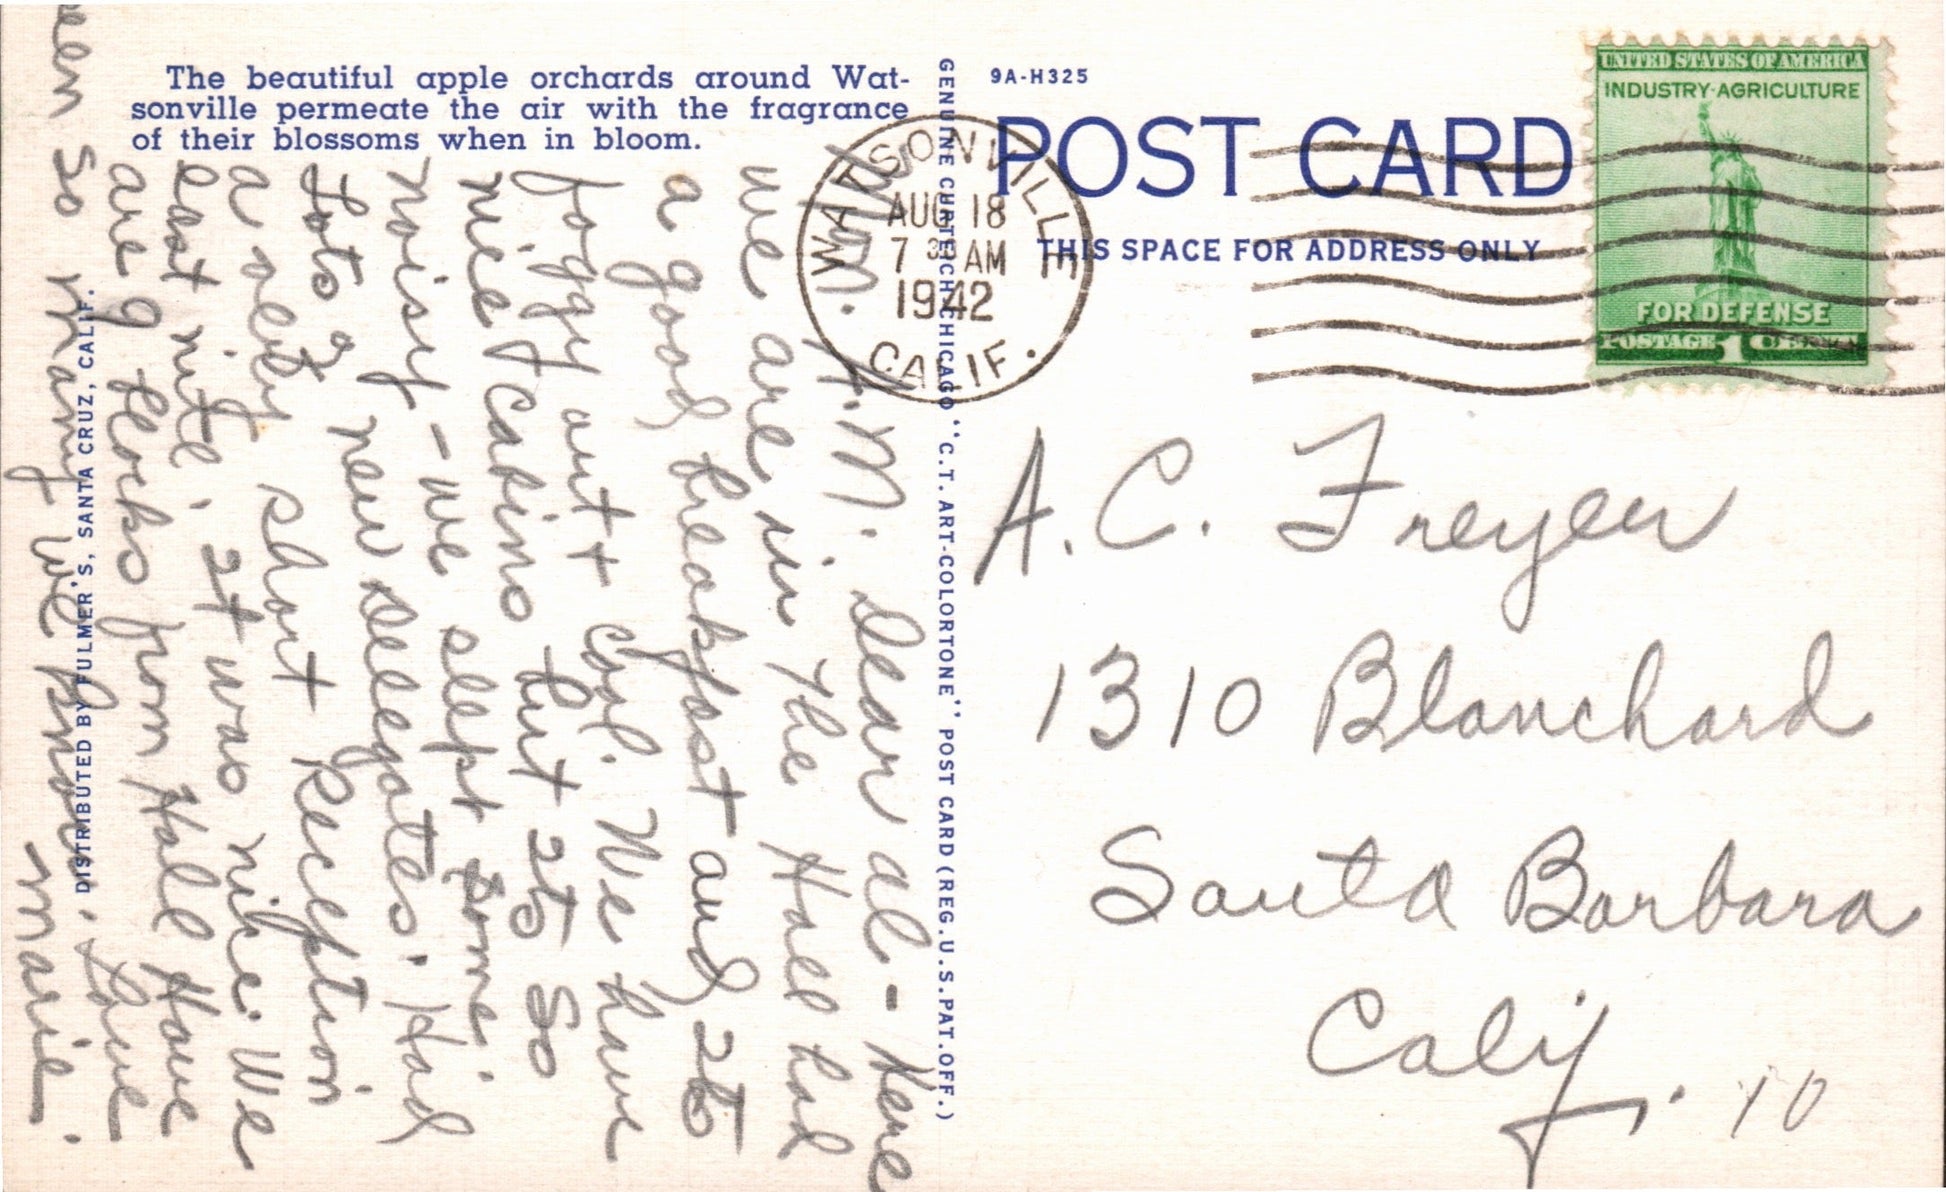 The beautiful apple orchards around Wat-
sonville permeate the air with the fragrance
of their blossoms when in bloom.
9A-H325
POST CARD
THIS SPACE FOR ADDRESS ONLY
WATSONVILLE
AUG 18
7 30 AM
1942
CALIF.
UNITED STATES OF AMERICA
INDUSTRY·AGRICULTURE
FOR DEFENSE
POSTAGE 1 CENT
GENUINE CURTEICH-CHICAGO "C.T. ART-COLORTONE" POST CARD (REG. U.S. PAT. OFF.)
DISTRIBUTED BY FULMER'S, SANTA CRUZ, CALIF.
A.M. Dear Al - Here
we are in the Hall had
a good breakfast and its
foggy out & cool. We have
nice cabins but its so
noisy - we slept some.
Lots of new delegates. Had
a very short reception
last nite. It was nice. We
are 9 blocks from Hall Have
seen so many we know. Love
Marie.
A. C. Freyer
1310 Blanchard
Santa Barbara
Calif.
10